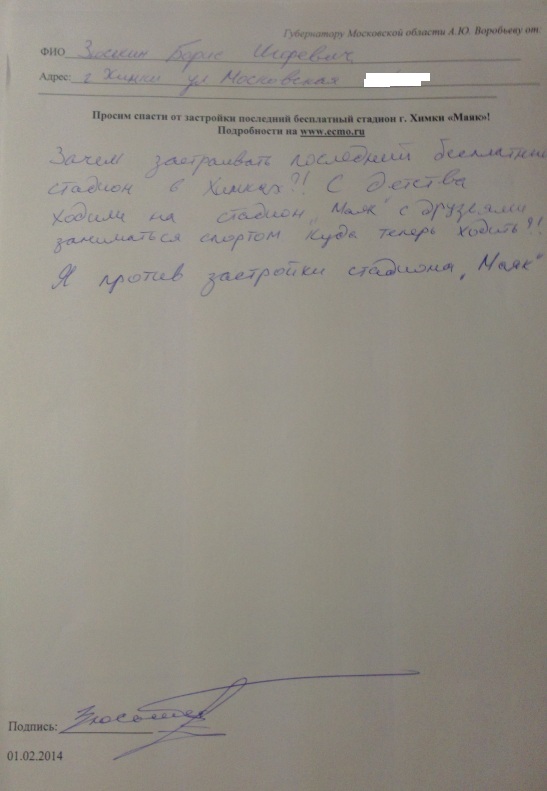 Губернатору Московской области А.Ю. Воробьеву от:
ФИО Зоскин Борис Игоревич
Адрес: г Химки ул Московская
Просим спасти от застройки последний бесплатный стадион г. Химки «Маяк»!
Подробности на www.ecmo.ru
Зачем застраивать последний бесплатный
стадион в Химках?! С детства
ходили на стадион „Маяк“ с друзьями
заниматься спортом куда теперь ходить?!
Я против застройки стадиона „Маяк“
Подпись:
01.02.2014